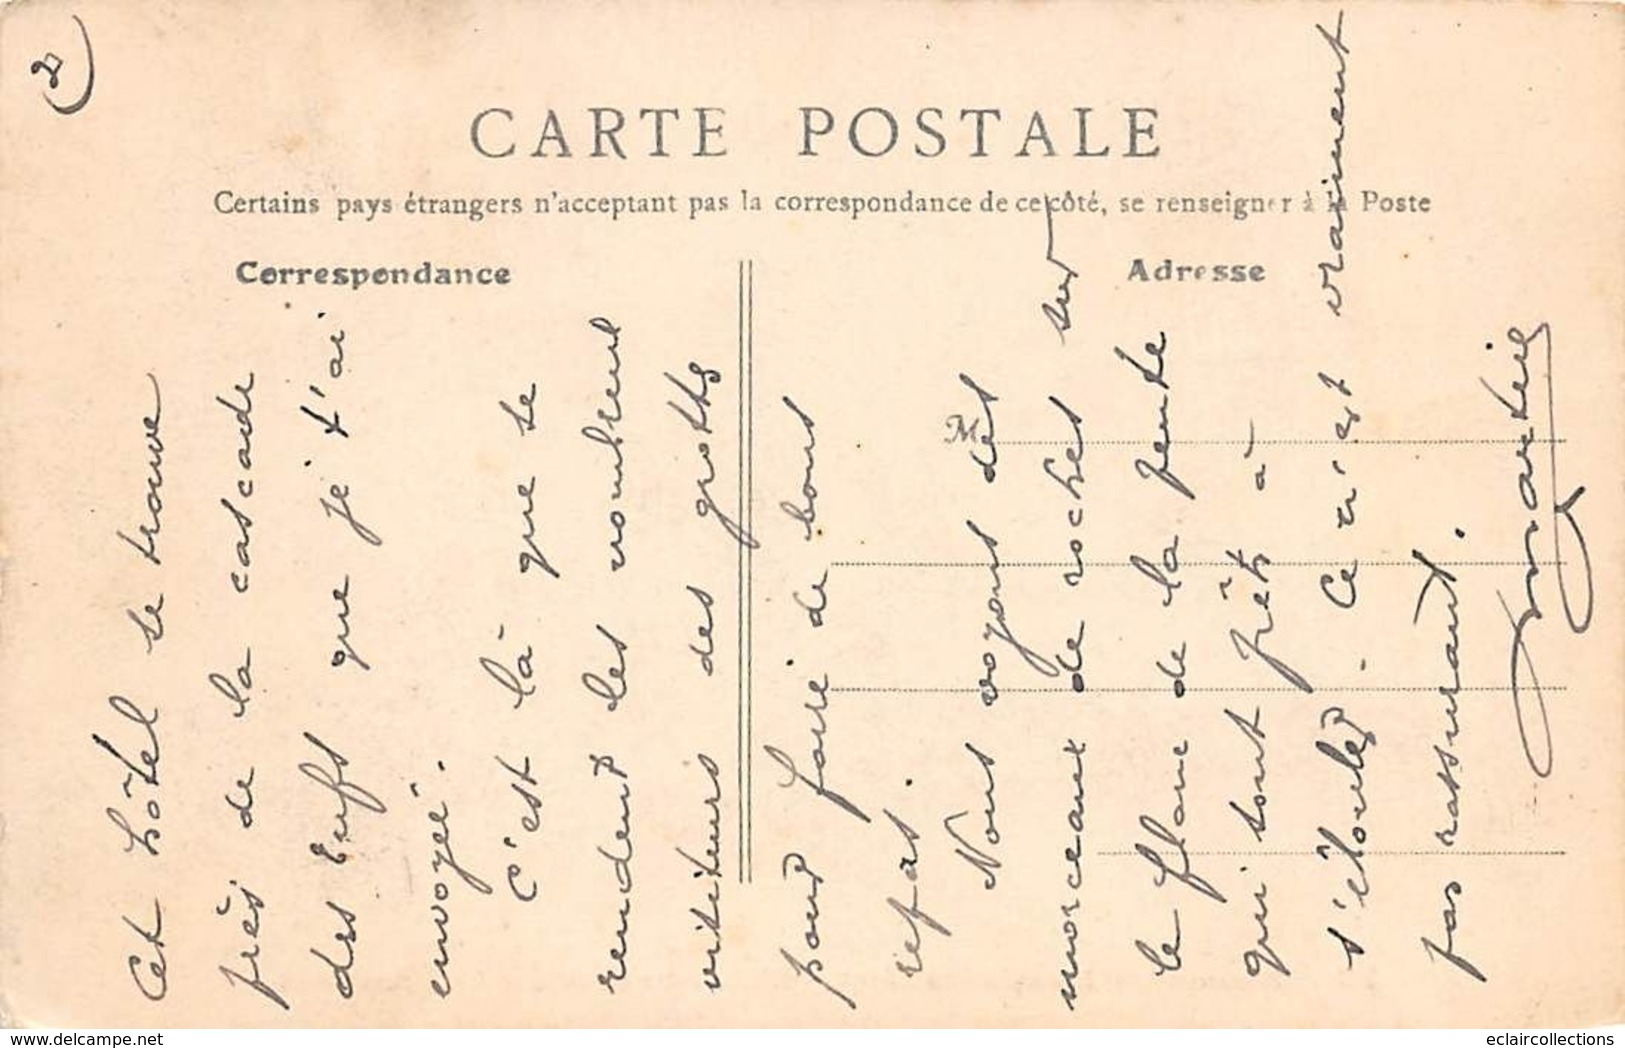 2
CARTE POSTALE
Certains pays étrangers n'acceptant pas la correspondance de ce côté, se renseigner à la Poste
Correspondance
Adresse
M
Cet hôtel se trouve
près de la cascade
des Enfs que je t'ai
envoyé.
C'est là que se
rendent les nombreux
visiteurs des grottes
pour faire de bons
repas.
Nous voyons des
morceaux de roches sur
le flanc de la pente
qui sont prêts à
s'ébouler - Ce n'est vraiment
pas rassurant.
delcampe.net
eclaircollections